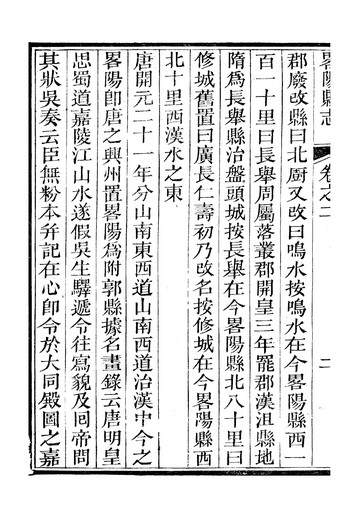 畧陽縣志
卷之二
二
郡廢改縣曰北厨又改曰鳴水按鳴水在今畧陽縣西一
百一十里曰長舉周屬落叢郡開皇三年罷郡漢沮縣地
隋爲長舉縣治盤頭城按長舉在今畧陽縣北八十里曰
修城舊置曰廣長仁壽初乃改名按修城在今畧陽縣西
北十里西漢水之東
唐開元二十一年分山南東西道山南西道治漢中今之
畧陽卽唐之興州置畧陽爲附郭縣據名畫錄云唐明皇
思蜀道嘉陵江山水遂假吳生驛遞令往寫貌及囘帝問
其狀吳奏云臣無粉本幷記在心卽令於大同殿圖之嘉